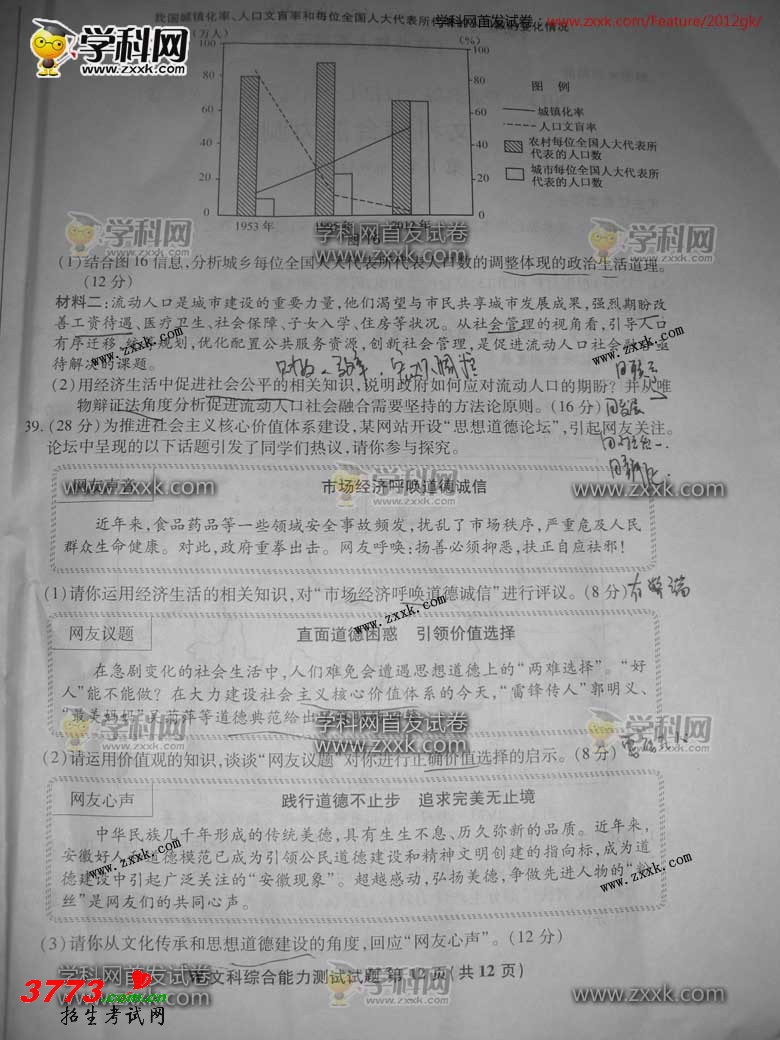 我国城镇化率、人口文盲率和每位全国人大代表所
学科网首发试卷：www.zxxk.com/Feature/2012gk/
的变化情况
学科网
www.zxxk.com
(万人)
(%)
100
80
60
40
20
0
100
80
60
40
20
0
图 例
城镇化率
人口文盲率
农村每位全国人大代表所
代表的人口数
城市每位全国人大代表所
代表的人口数
1953 年
1995 年
2012 年
图 16
学科网
zxxk.com
学科网首发试卷
www.zxxk.com
学科网
zxxk.com
(1)结合图 16 信息,分析城乡每位全国人大代表所代表人口数的调整体现的政治生活道理。
(12 分)
材料二:流动人口是城市建设的重要力量,他们渴望与市民共享城市发展成果,强烈期盼改
善工资待遇、医疗卫生、社会保障、子女入学、住房等状况。从社会管理的视角看,引导人口
有序迁移,
规划,优化配置公共服务资源,创新社会管理,是促进流动人口社会融
待解决的课题。
www.zxxk.com
www.zxxk.com
(2)用经济生活中促进社会公平的相关知识,说明政府如何应对流动人口的期盼?并从唯
物辩证法角度分析促进流动人口社会融合需要坚持的方法论原则。(16 分)
39. (28 分)为推进社会主义核心价值体系建设,某网站开设“思想道德论坛”,引起网友关注。
论坛中呈现的以下话题引发了同学们热议,请你参与探究。
学科网首发试卷
www.zxxk.com
学科网
zxxk.com
学科网首发试卷
www.zxxk.com
网友声音
市场经济呼唤道德诚信
近年来,食品药品等一些领域安全事故频发,扰乱了市场秩序,严重危及人民
群众生命健康。对此,政府重拳出击。网友呼唤:扬善必须抑恶,扶正自应祛邪!
(1)请你运用经济生活的相关知识,对“市场经济呼唤道德诚信”进行评议。(8 分)
www.zxxk.com
www.zxxk.com
网友议题
直面道德困惑 引领价值选择
在急剧变化的社会生活中,人们难免会遭遇思想道德上的“两难选择”。“好
人”能不能做?在大力建设社会主义核心价值体系的今天,“雷锋传人”郭明义、
“最美妈妈”吴菊萍等道德典范给出
学科网
zxxk.com
学科网首发试卷
www.zxxk.com
学科网
zxxk.com
(2)请运用价值观的知识,谈谈“网友议题”对你进行正确价值选择的启示。(8 分)
网友心声
践行道德不止步 追求完美无止境
中华民族几千年形成的传统美德,具有生生不息、历久弥新的品质。近年来,
安徽好人和道德模范已成为引领公民道德建设和精神文明创建的指向标,成为道
德建设中引起广泛关注的“安徽现象”。超越感动,弘扬美德,争做先进人物的“粉
丝”是网友们的共同心声。
www.zxxk.com
www.zxxk.com
(3)请你从文化传承和思想道德建设的角度,回应“网友心声”。(12 分)
学科网首发试卷
www.zxxk.com
学科网
zxxk.com
学科网首发试卷
www.zxxk.com
文科综合能力测试试题 第 12 页(共 12 页)
3773.com.cn
招生考试网